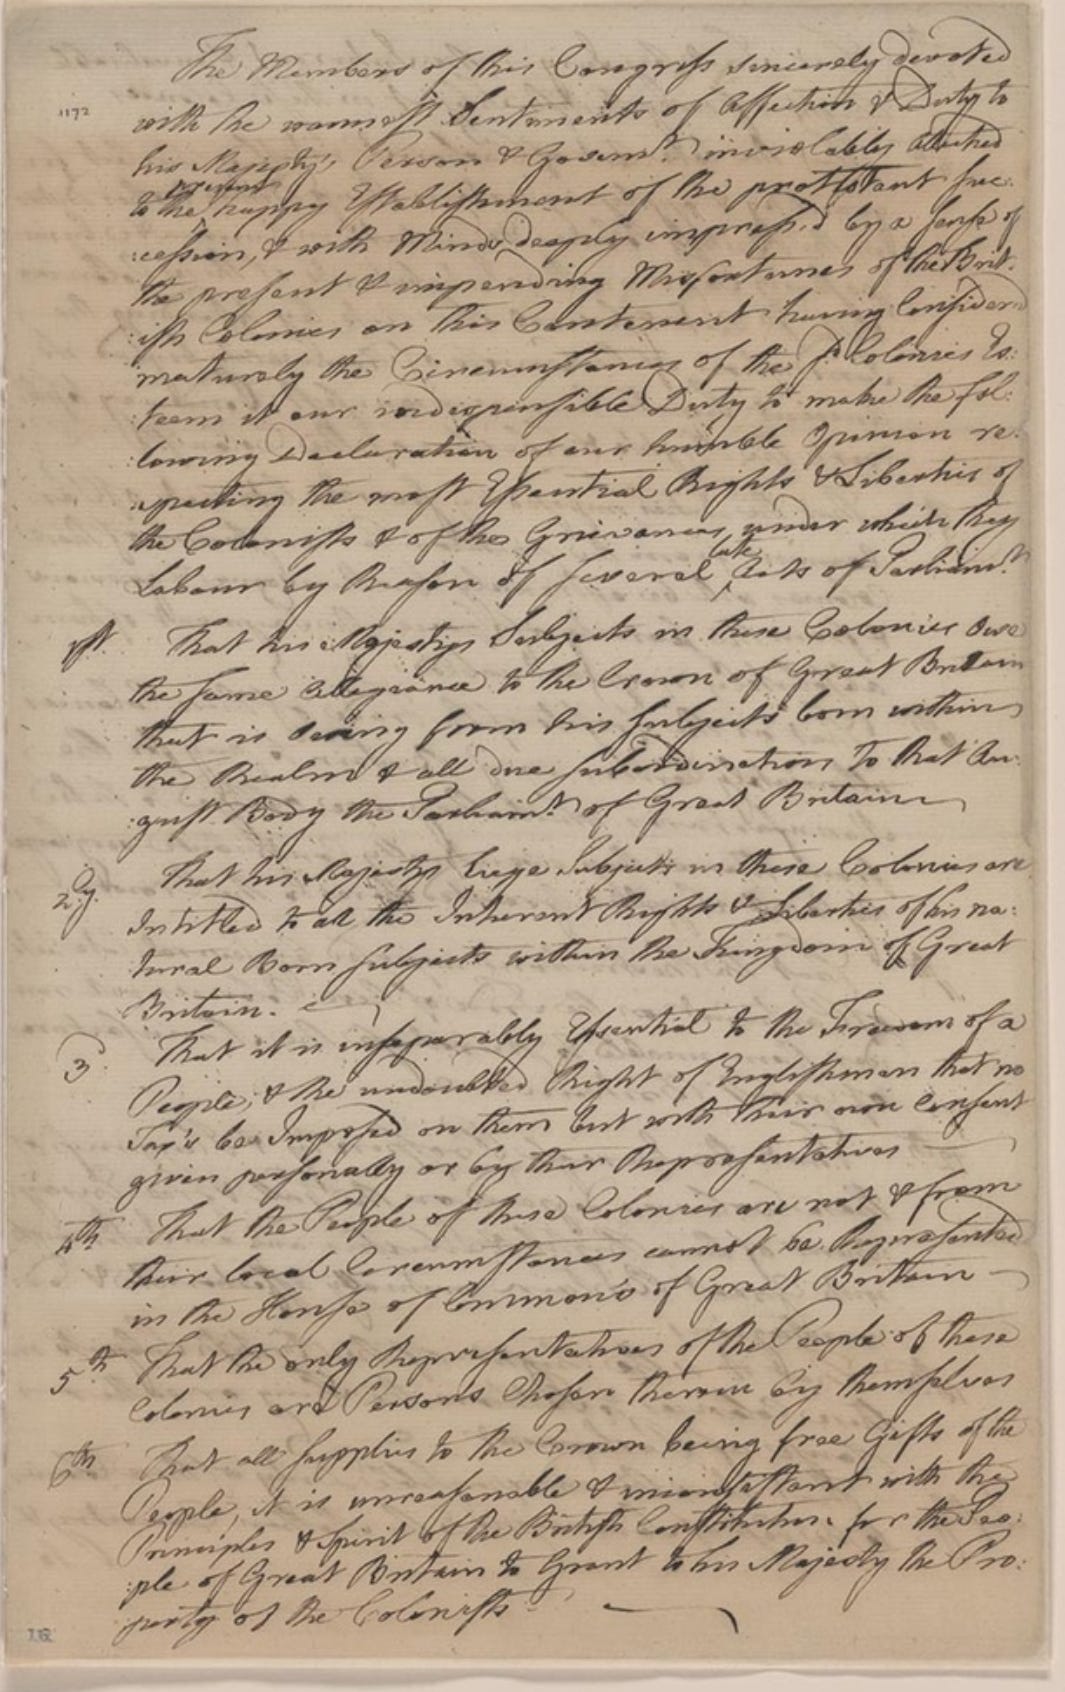 The Members of this Congress sincerely devoted
1172
with the warmest Sentiments of Affection & Duty to
his Majesty's Person & Governmt. inviolably attached
present
to the happy Establishment of the protestant suc:
:cession, & with Minds deeply impress'd by a sense of
the present & impending Misfortunes of the Brit:
:ish Colonies on this Contenent having Considerd
maturely the Circumstances of the sd. Colonies Es:
:teem it our indispensible Duty to make the fol:
:lowing Declaration of our humble Opinion re:
:specting the most Essential Rights & Liberties of
the Colonists & of the Grievances under which they
late
Labour by Reason of several Acts of Parliamt.
1st. That his Majestys Subjects in these Colonies owe
the same Allegiance to the Crown of Great Britain
that is owing from his subjects born within
the Realm & all due subordination to that Au:
:gust Body the Parliamt. of Great Britain
2dly. That his Majestys Liege Subjects in these Colonies are
Intitled to all the Inherent Rights & Liberties of his na:
tural Born subjects within the Kingdom of Great
Britain.
3d. That it is inseparably Essential to the Freedom of a
People, & the undoubted Right of Englishmen that no
Tax's be Imposed on them but with their own Consent
given personally or by their Representatives
4th That the People of these Colonies are not & from
their local Circumstances cannot be Represented
in the House of Common's of Great Britain
5th That the only Representatives of the People of these
Colonies are Persons Chosen therein by themselves
6th That all supplies to the Crown being free Gifts of the
People, it is unreasonable & inconsistant with the
Principles & Spirit of the British Constitution for the Peo:
:ple of Great Britain to Grant to his Majesty the Pro:
perty of the Colonists